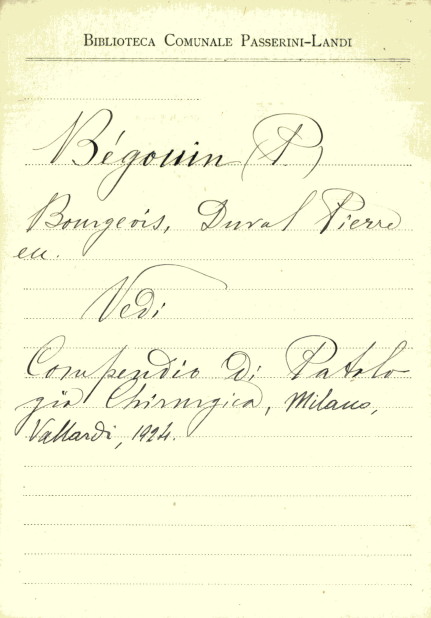 BIBLIOTECA COMUNALE PASSERINI-LANDI
Bégouin (P.)
Bourgeois, Duval Pierre
ecc.
Vedi
Compendio di Patolo-
gia Chirurgica, Milano,
Vallardi, 1924.